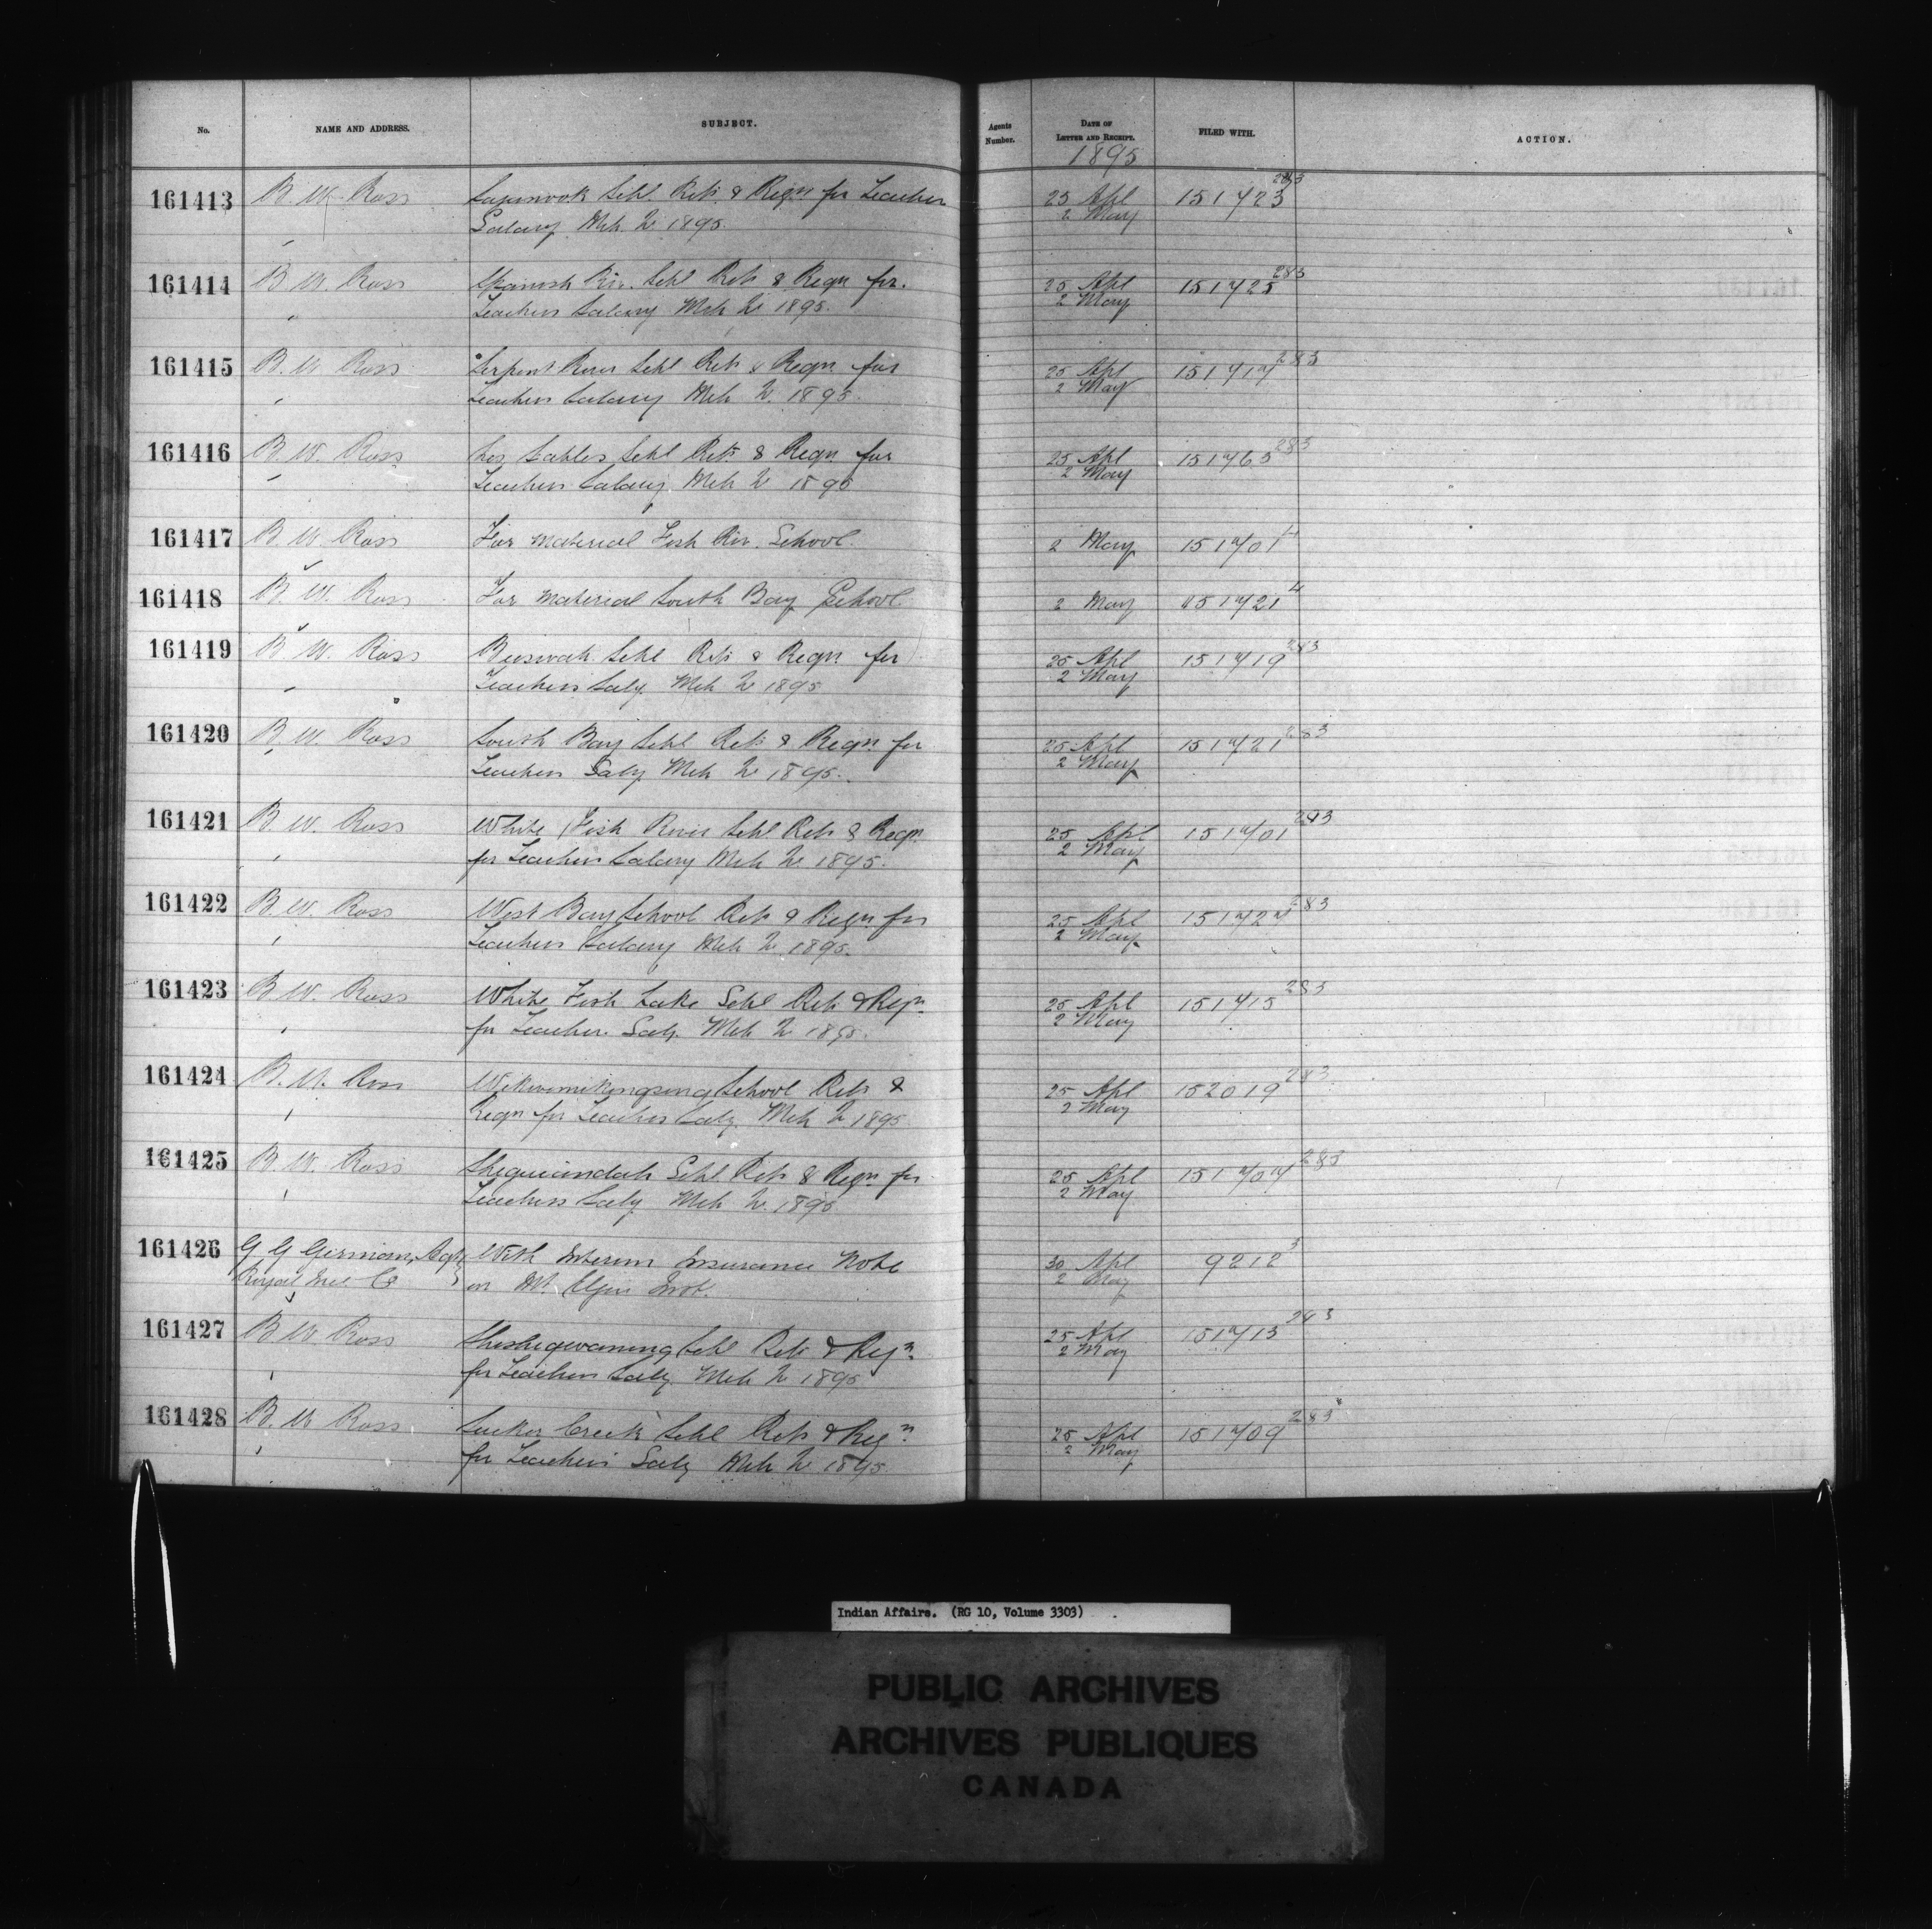 No. NAME AND ADDRESS. SUBJECT. Agents Number. DATE OF LETTER AND RECEIPT. FILED WITH. ACTION.
1895
161413 B. W. Ross Schl Rets & Reqn for Teacher 25 Apl 151723 283
" Salary Mch Qr 1895. 2 May
161414 B. W. Ross Spanish Riv. Schl Rets & Reqn for 25 Apl 151725 283
" Teachers Salary Mch Qr 1895. 2 May
161415 B. W. Ross Serpent River Schl Rets & Reqn for 25 Apl 151717 283
" Teachers Salary Mch Qr 1895. 2 May
161416 B. W. Ross Les Sables Schl Rets & Reqn for 25 Apl 151763 283
" Teachers Salary Mch Qr 1895 2 May
161417 B. W. Ross For material Fish Riv. School. 2 May 151701 4
161418 B. W. Ross For material South Bay School. 2 May 151721 4
161419 B. W. Ross Schl Rets & Reqn for 25 Apl 151719 283
" Teachers Saly. Mch Qr 1895 2 May
161420 B. W. Ross South Bay Schl Rets & Reqn for 25 Apl 151721 283
" Teachers Saly Mch Qr 1895. 2 May
161421 B. W. Ross White Fish River Schl Rets & Reqn 25 Apl 151701 283
" for Teachers Salary Mch Qr 1895. 2 May
161422 B. W. Ross West Bay School Rets & Reqn for 25 Apl 151727 283
" Teachers Salary Mch Qr 1895. 2 May
161423 B. W. Ross White Fish Lake Schl Rets & Reqn 25 Apl 151715 283
" for Teacher Saly. Mch Qr 1895. 2 May
161424 B. W. Ross Wikwemikongsing School Rets & 25 Apl 152019 283
" Reqn for Teachers Saly. Mch Qr 1895 2 May
161425 B. W. Ross Sheguiandah Schl Rets & Reqn for 25 Apl 151707 283
" Teachers Saly Mch Qr 1895 2 May
161426 G G German, Agt, With Interim Insurance Note 30 Apl 9212 3
Royal Ins Co on Mt. Elgin Inst. 2 May
161427 B W Ross Sheshegwaning Schl Rets & Reqn 25 Apl 151713 283
" for Teachers Saly. Mch Qr 1895 2 May
161428 B. W Ross Sucker Creek Schl Rets & Reqn 25 Apl 151709 283
" for Teachers Saly Mch Qr 1895. 2 May
Indian Affairs. (RG 10, Volume 3303)
PUBLIC ARCHIVES
ARCHIVES PUBLIQUES
CANADA